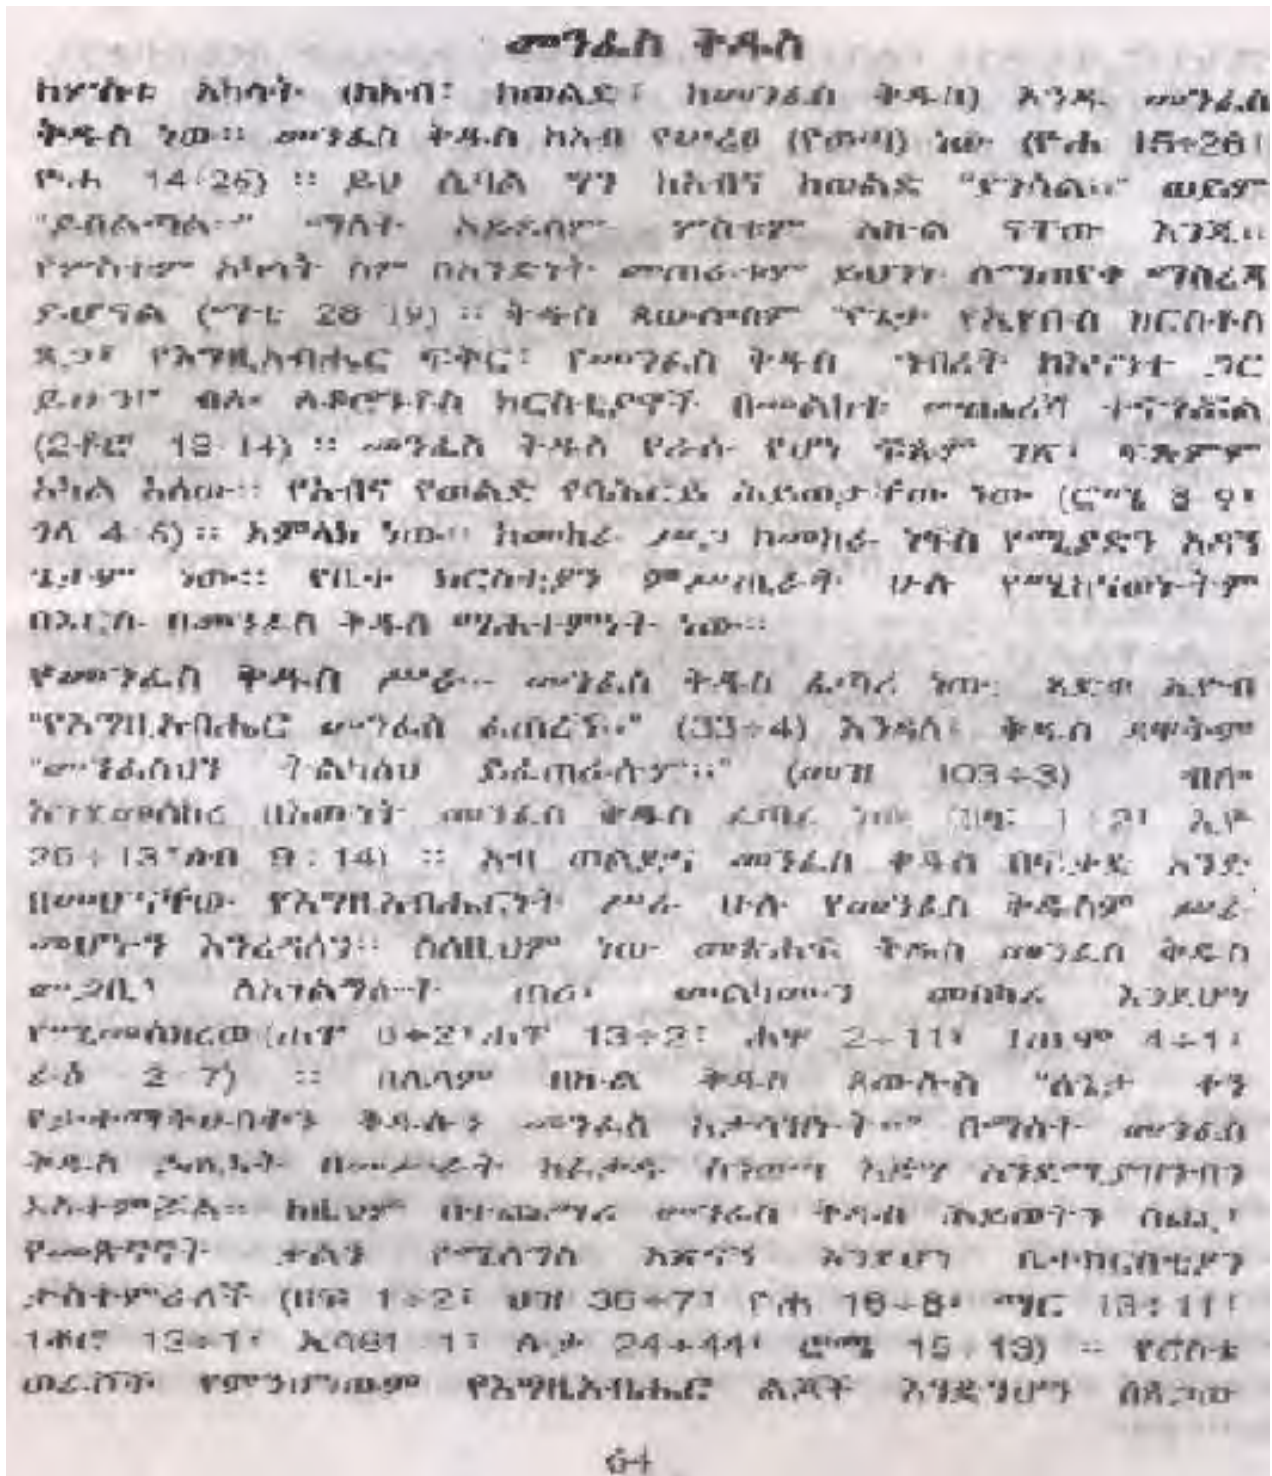 መንፈስ ቅዱስ
ከሦስቱ አካላት (ከአብ፣ ከወልድ፣ ከመንፈስ ቅዱስ) አንዱ መንፈስ
ቅዱስ ነው። መንፈስ ቅዱስ ከአብ የሠረፀ (የወጣ) ነው (ዮሐ 15÷26፣
ዮሐ 14÷26) ። ይህ ሲባል ግን ከአብና ከወልድ "ያንሳል።" ወይም
"ይበልጣል።" ማለት አይደለም ሦስቱም እኩል ናቸው እንጂ።
የሦስቱም አካላት ስም በአንድነት መጠራቱም ይህንኑ ማስረጃ
ይሆናል (ማቴ 28÷19) ። ቅዱስ ጳውሎስም "የጌታ የኢየሱስ ክርስቶስ
ጸጋ፣ የእግዚአብሔር ፍቅር፣ የመንፈስ ቅዱስ ኅብረት ከእናንተ ጋር
ይሁን።" ብሎ ለቆሮንቶስ ክርስቲያኖች በመልእክቱ
(2ቆሮ 13÷14) ። መንፈስ ቅዱስ የራሱ የሆነ ፍጹም ገጽ፣ ፍጹምም
አካል አለው። የአብና የወልድ የባሕርይ ሕይወታቸው ነው (ሮሜ 8÷9፣
ገላ 4÷6) ። አምላክ ነው። ከመከራ ሥጋ ከመከራ ነፍስ የሚያድን አዳኝ
ጌታም ነው። የቤተ ክርስቲያን ምሥጢራት ሁሉ የሚከናወኑትም
በእርሱ በመንፈስ ቅዱስ ነው።
የመንፈስ ቅዱስ ሥራ፦ መንፈስ ቅዱስ ፈጣሪ ነው፤ ጻድቁ ኢዮብ
"የእግዚአብሔር መንፈስ ፈጠረኝ።" (33÷4) እንዳለ፣ ቅዱስ ዳዊትም
"መንፈስህን ትልካለህ ይፈጠራሉም።" (መዝ 103÷3) ብሎ
እንደመሰከረ በእውነት መንፈስ ቅዱስ ፈጣሪ ነው (ዘፍ 1÷2፣ ኢዮ
26÷13 ዕብ 9÷14) ። አብ ወልድና መንፈስ ቅዱስ በፈቃድ አንድ
በመሆናቸው የእግዚአብሔርነት ሥራ ሁሉ የመንፈስ ቅዱስም ሥራ
መሆኑን እንረዳለን። ስለዚህም ነው መጽሐፍ ቅዱስ መንፈስ ቅዱስ
መጋቢ፣ ለአገልግሎት ጠሪ፣ መልካሙን መካሪ እንደሆነ
የሚመሰክረው (ሐዋ 13÷2፣ ሐዋ 2÷11፣ 1ጢሞ 4÷1፣
ራእ 2÷7) ። በሌላም በኩል ቅዱስ ጳውሎስ "ለጌታ ቀን
የታተማችሁበትን ቅዱሱን መንፈስ አታሳዝኑት።" በማለት መንፈስ
ቅዱስ ኃጢአት በመሥራት ከፈቃዱ ስንወጣ እንደሚያዝንብን
አስተምሯል። ከዚህም በተጨማሪ መንፈስ ቅዱስ ሕይወትን ሰጪ፣
የመጽናኛት ቃልን የሚሰጥ አጽናኝ እንደሆነ ቤተክርስቲያን
ታስተምራለች (ዘፍ 1÷2፣ ህዝ 36÷7፣ ዮሐ 16÷8፣ ማር 13÷11፣
1ቆሮ 12÷1፣ ኢሳ61÷1፣ ሉቃ 24÷44፣ ሮሜ 15÷13) ።
የእግዚአብሔር ልጆች እንድንሆን በጸጋው
64